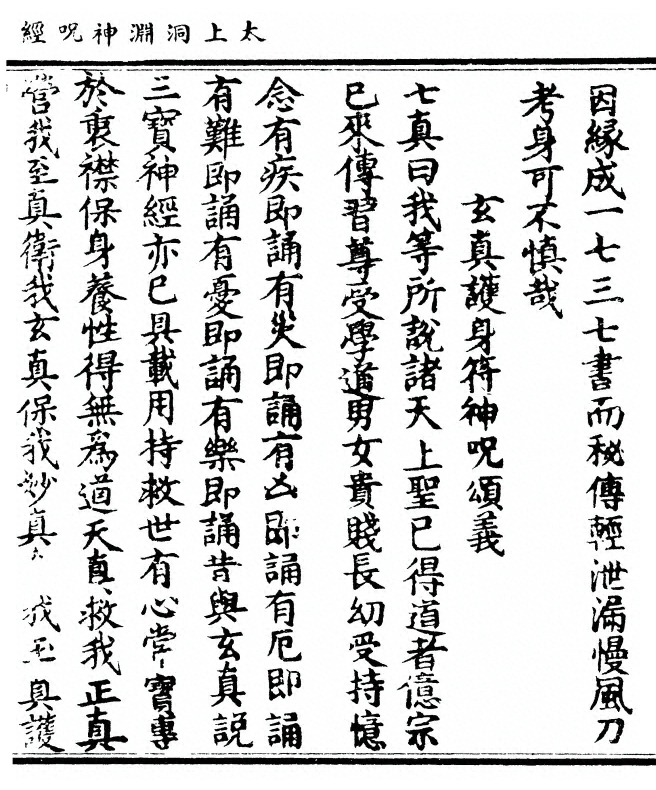 太上洞淵神呪經
因緣成一七三七書而秘傳輕泄漏慢風刀
考身可不慎哉
玄真護身符神呪頌義
七真曰我等所說諸天上聖已得道者億宗
已來傳習尊受學道男女貴賤長幼受持憶
念有疾即誦有災即誦有凶即誦有厄即誦
有難即誦有憂即誦有樂即誦昔與玄真說
三寶神經亦已具載用持救世有心常寶專
於衷襟保身養性得無為道天真救我正真
營我至真衛我玄真保我妙真 我 真護